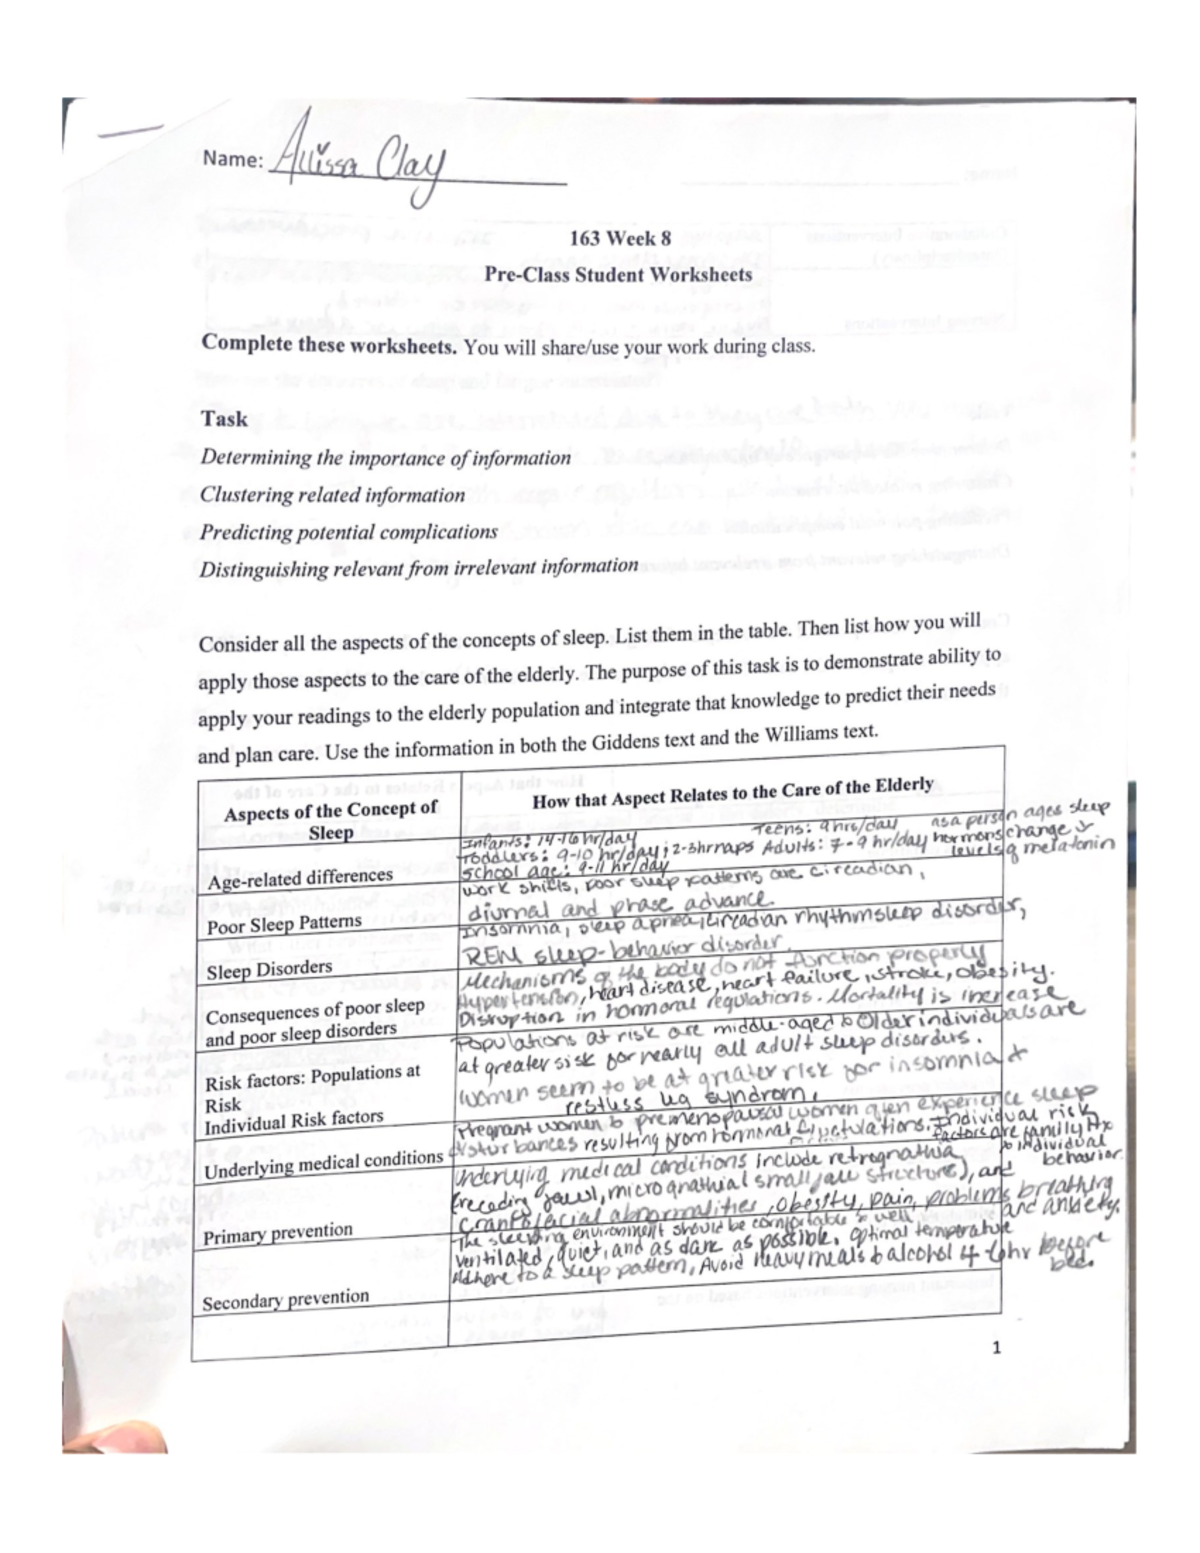 Name: Allissa Clay
163 Week 8
Pre-Class Student Worksheets
Complete these worksheets. You will share/use your work during class.
Task
Determining the importance of information
Clustering related information
Predicting potential complications
Distinguishing relevant from irrelevant information
Consider all the aspects of the concepts of sleep. List them in the table. Then list how you will
apply those aspects to the care of the elderly. The purpose of this task is to demonstrate ability to
apply your readings to the elderly population and integrate that knowledge to predict their needs
and plan care. Use the information in both the Giddens text and the Williams text.
Aspects of the Concept of
Sleep
How that Aspect Relates to the Care of the Elderly
Age-related differences
Infants: 14-16 hr/day Teens: 9 hrs/day as a person ages sleep
Toddlers: 9-10 hr/day; 2-3hr naps Adults: 7-9 hr/day hormons change ↓
School age: 9-11 hr/day levels of melatonin
Poor Sleep Patterns
work shifts, poor sleep patterns are circadian,
diurnal and phase advance
Sleep Disorders
Insomnia, sleep apnea, circadian rhythm sleep disorder,
REM sleep-behavior disorder.
Consequences of poor sleep
and poor sleep disorders
Mechanisms of the body do not function properly
Hypertension, heart disease, heart failure, stroke, obesity.
Disruption in hormonal regulations. Mortality is increase
Risk factors: Populations at
Risk
Individual Risk factors
Populations at risk are middle-aged & Older individuals are
at greater sisk for nearly all adult sleep disorders.
Women seem to be at greater risk for insomnia &
restless leg syndrom.
Underlying medical conditions
Pregnant women & premenopausal women often experience sleep
disturbances resulting from hormonal fluctuations. Individual risk
factors are family Hx
& individual
behavior.
Primary prevention
Underlying medical conditions include retrognathia
(receding jaws), micrognathial small jaw structure), and
craniofacial abnormalities, Obesity, pain, problems breathing
and anxiety.
Secondary prevention
The sleeping environment should be comfortable & well
ventilated, quiet, and as dark as possible. Optimal temperature
Adhere to a sleep pattern, Avoid heavy meals & alcohol 4-6hr before
bed.
1